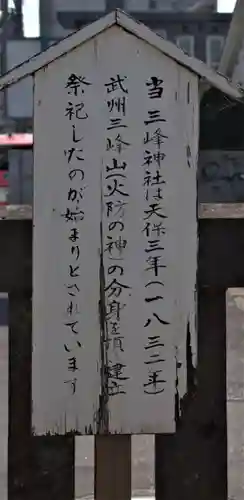 当三峰神社は天保三年(一八三二年)
武州三峰山(火防の神)の分身を頂き建立
祭祀したのが始まりとされています